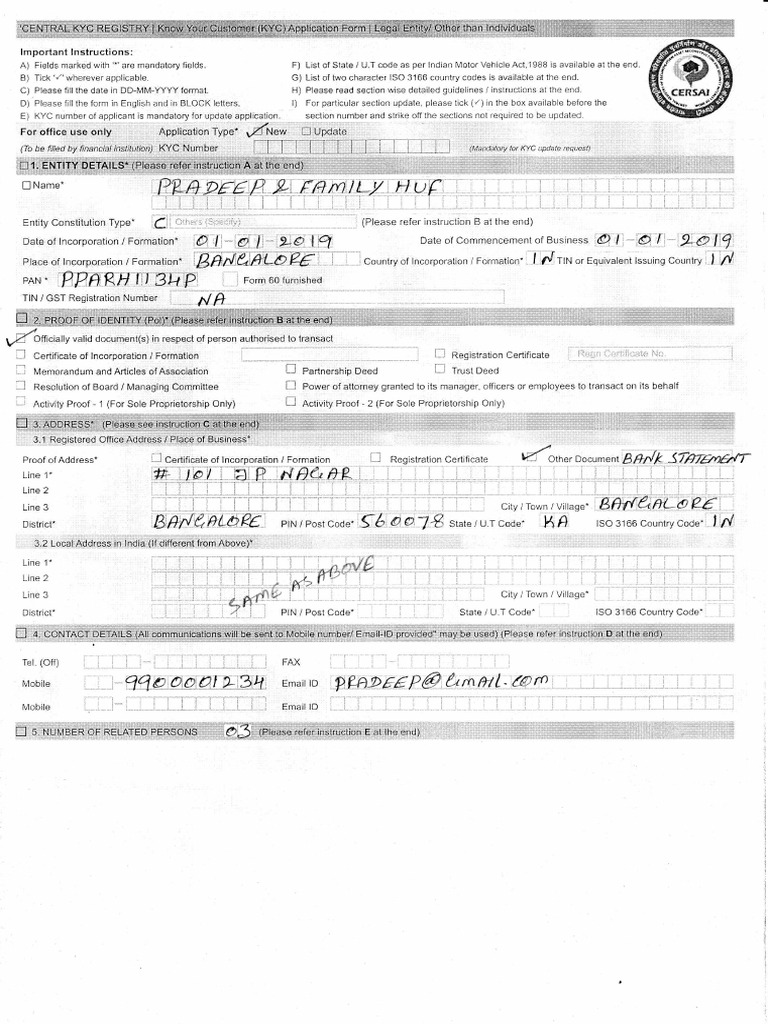 'CENTRAL KYC REGISTRY | Know Your Customer (KYC) Application Form | Legal Entity/ Other than Individuals
Important Instructions:
A) Fields marked with "*" are mandatory fields.
B) Tick "✓" wherever applicable.
C) Please fill the date in DD-MM-YYYY format.
D) Please fill the form in English and in BLOCK letters.
E) KYC number of applicant is mandatory for update application.
F) List of State / U.T code as per Indian Motor Vehicle Act,1988 is available at the end.
G) List of two character ISO 3166 country codes is available at the end.
H) Please read section wise detailed guidelines / instructions at the end.
I) For particular section update, please tick (✓) in the box available before the
section number and strike off the sections not required to be updated.
CERSAI
For office use only Application Type* ✓ New Update
(To be filled by financial institution) KYC Number (Mandatory for KYC update request)
1. ENTITY DETAILS* (Please refer instruction A at the end)
Name* PRADEEP & FAMILY HUF
Entity Constitution Type* C Others (Specify) (Please refer instruction B at the end)
Date of Incorporation / Formation* 01-01-2019 Date of Commencement of Business 01-01-2019
Place of Incorporation / Formation* BANGALORE Country of Incorporation / Formation* IN TIN or Equivalent Issuing Country IN
PAN * PPARH1134P Form 60 furnished
TIN / GST Registration Number NA
2. PROOF OF IDENTITY (PoI)* (Please refer instruction B at the end)
✓ Officially valid document(s) in respect of person authorised to transact
Certificate of Incorporation / Formation Registration Certificate Regn Certificate No.
Memorandum and Articles of Association Partnership Deed Trust Deed
Resolution of Board / Managing Committee Power of attorney granted to its manager, officers or employees to transact on its behalf
Activity Proof - 1 (For Sole Proprietorship Only) Activity Proof - 2 (For Sole Proprietorship Only)
3. ADDRESS* (Please see instruction C at the end)
3.1 Registered Office Address / Place of Business*
Proof of Address* Certificate of Incorporation / Formation Registration Certificate ✓ Other Document BANK STATEMENT
Line 1* # 101 JP NAGAR
Line 2
Line 3 City / Town / Village* BANGALORE
District* BANGALORE PIN / Post Code* 560078 State / U.T Code* KA ISO 3166 Country Code* IN
3.2 Local Address in India (If different from Above)*
Line 1*
Line 2 SAME AS ABOVE
Line 3 City / Town / Village*
District* PIN / Post Code* State / U.T Code* ISO 3166 Country Code*
4. CONTACT DETAILS (All communications will be sent to Mobile number/ Email-ID provided" may be used) (Please refer instruction D at the end)
Tel. (Off) FAX
Mobile 9900001234 Email ID PRADEEP@GMAIL.COM
Mobile Email ID
5. NUMBER OF RELATED PERSONS 03 (Please refer instruction E at the end)